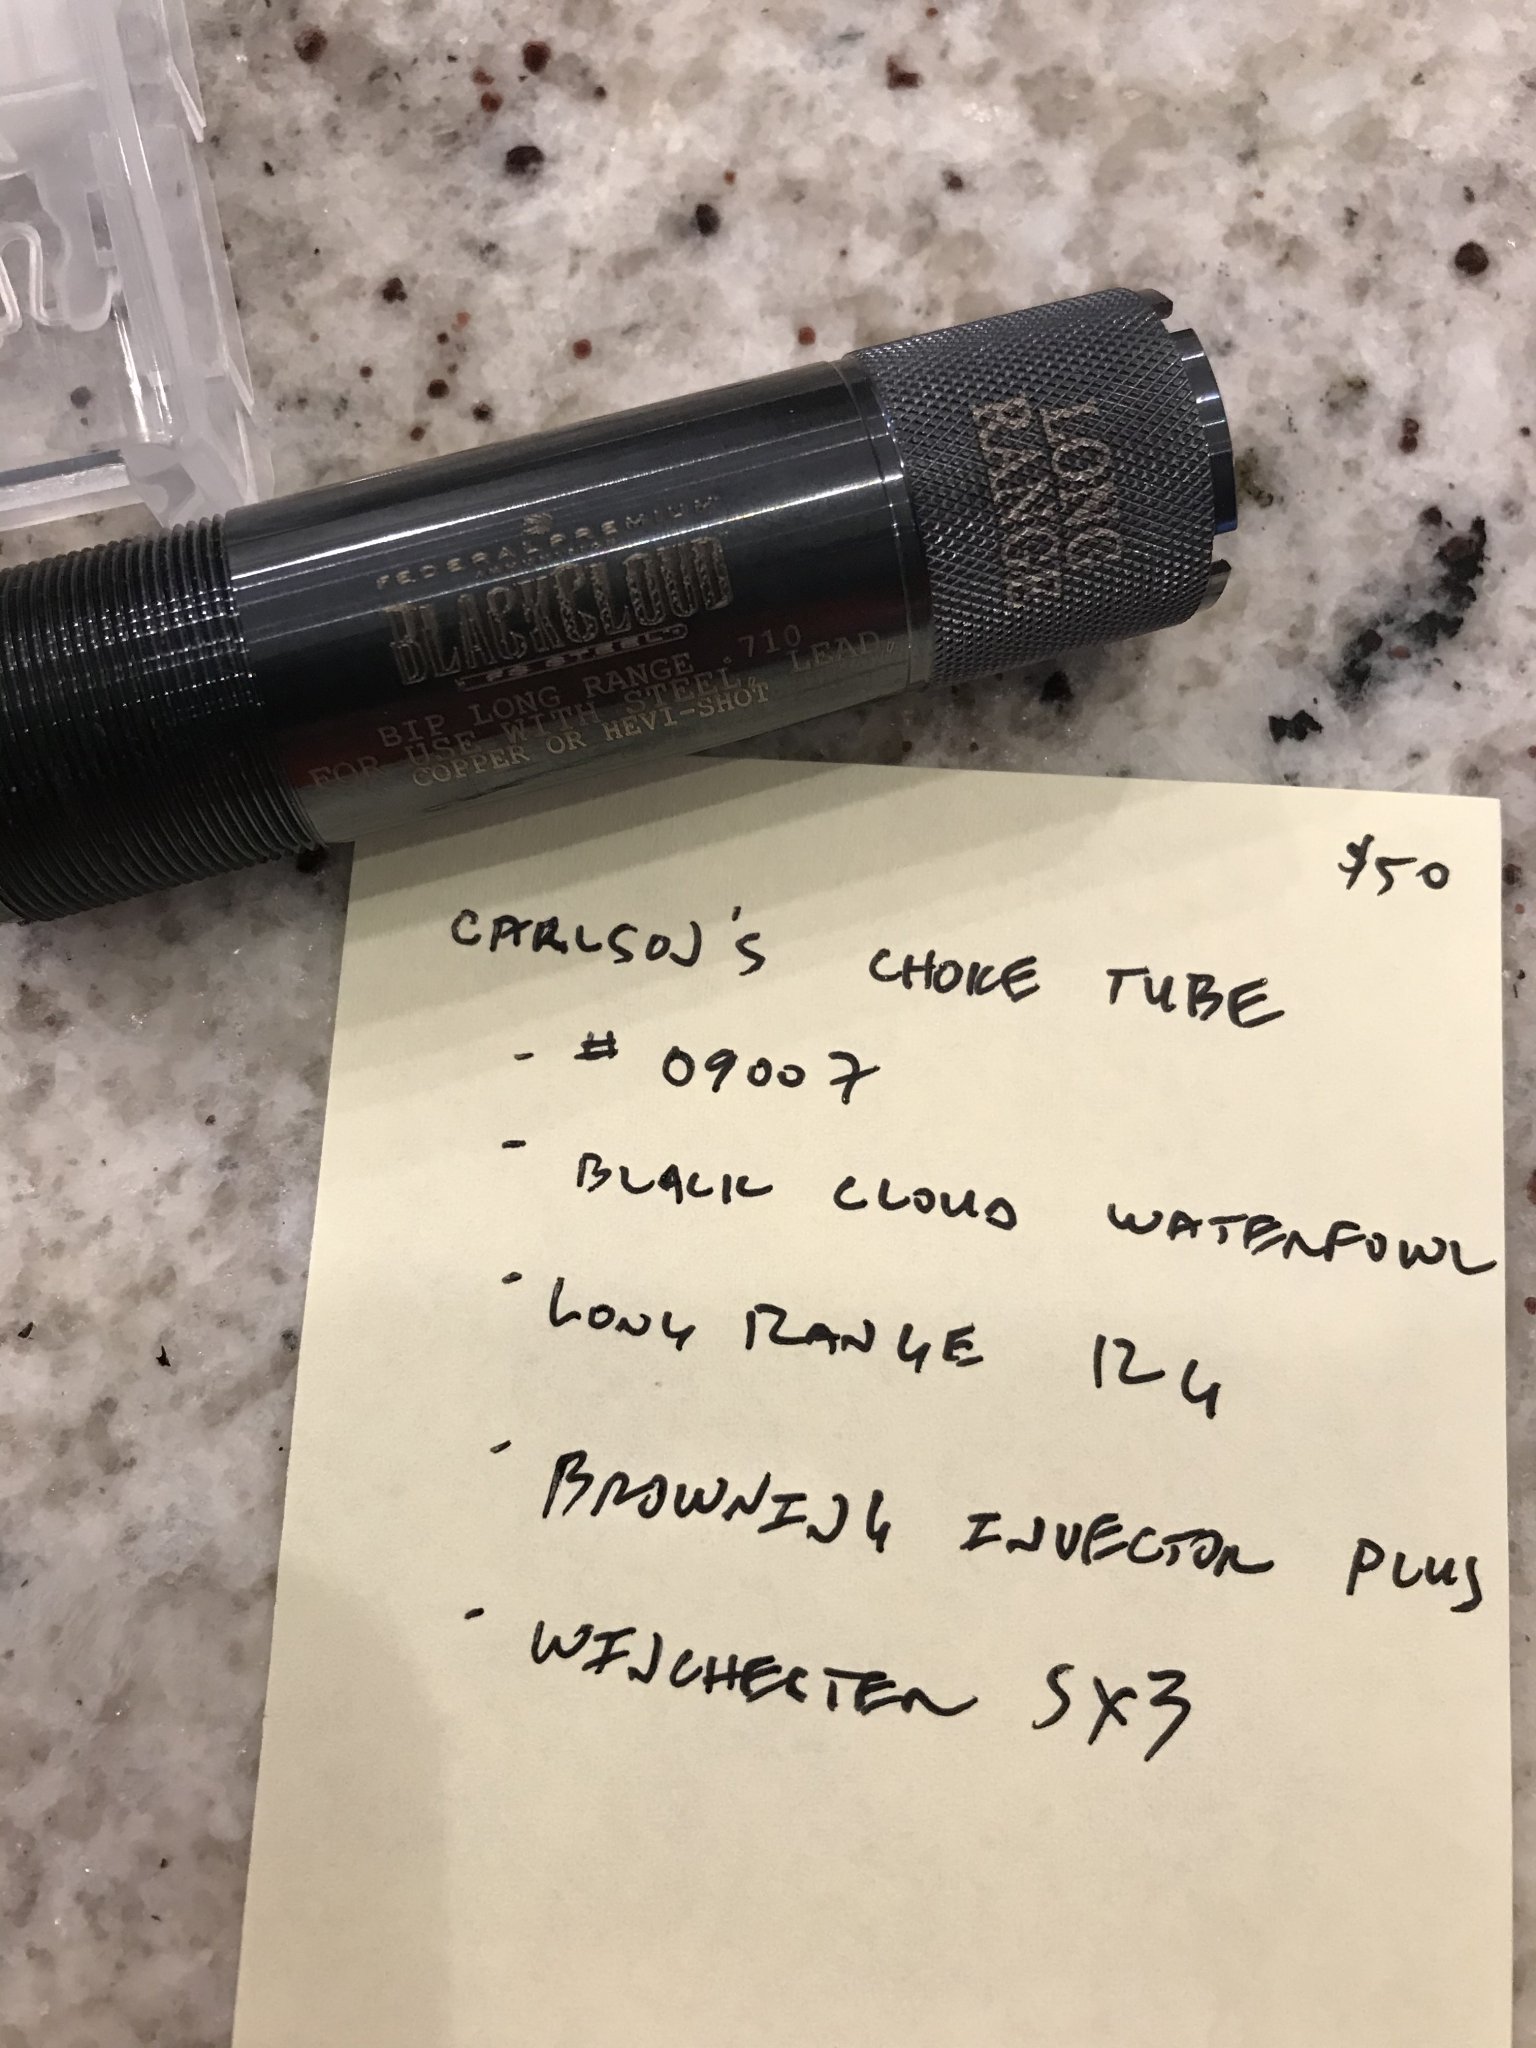 LONG
RANGE
FEDERAL PREMIUM
BLACKCLOUD
FS STEEL
BIP LONG RANGE .710
FOR USE WITH STEEL, LEAD,
COPPER OR HEVI-SHOT
$50
CARLSON'S CHOKE TUBE
- # 09007
- BLACK CLOUD WATERFOWL
- LONG RANGE 12G
- BROWNING INVECTOR PLUS
- WINCHESTER SX3